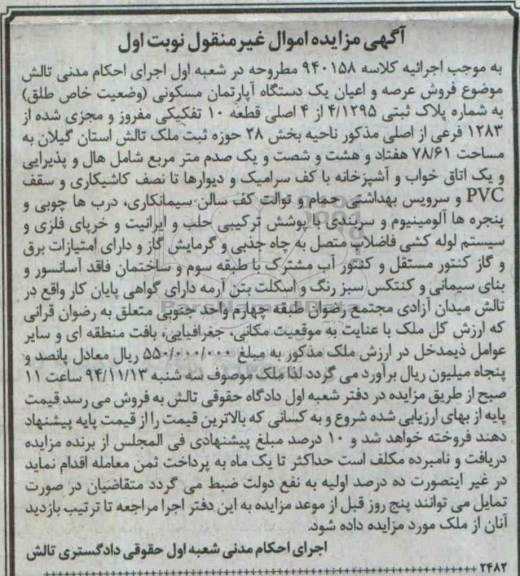 آگهی مزایده اموال غیر منقول نوبت اول
به موجب اجرائیه کلاسه ۹۴۰۱۵۸ مطروحه در شعبه اول اجرای احکام مدنی تالش
موضوع فروش عرصه و اعیان یک دستگاه آپارتمان مسکونی (وضعیت خاص طلق)
به شماره پلاک ثبتی ۴/۱۲۹۵ از ۴ اصلی قطعه ۱۰ تفکیکی مفروز و مجزی شده از
۱۲۸۳ فرعی از اصلی مذکور ناحیه بخش ۲۸ حوزه ثبت ملک تالش استان گیلان به
مساحت ۷۸/۶۱ هفتاد و هشت و شصت و یک صدم متر مربع شامل هال و پذیرایی
و یک اتاق خواب و آشپزخانه با کف سرامیک و دیوارها تا نصف کاشیکاری و سقف
PVC و سرویس بهداشتی حمام و توالت کف سالن سیمانکاری، درب ها چوبی و
پنجره ها آلومینیوم و سربندی با پوشش ترکیبی حلب و ایرانیت و خرپای فلزی و
سیستم لوله کشی فاضلاب متصل به چاه جذبی و گرمایش گاز و دارای امتیازات برق
و گاز کنتور مستقل و کنتور آب مشترک با طبقه سوم و ساختمان فاقد آسانسور و
بنای سیمانی و کنتکس سبز رنگ و اسکلت بتن آرمه دارای گواهی پایان کار واقع در
تالش میدان آزادی مجتمع رضوان طبقه چهارم واحد جنوبی متعلق به رضوان قرانی
که ارزش کل ملک با عنایت به موقعیت مکانی، جغرافیایی، بافت منطقه ای و سایر
عوامل ذیمدخل در ارزش ملک مذکور به مبلغ ۵۵۰/۰۰۰/۰۰۰ ریال معادل پانصد و
پنجاه میلیون ریال برآورد می گردد لذا ملک موصوف سه شنبه ۹۴/۱۱/۱۳ ساعت ۱۱
صبح از طریق مزایده در دفتر شعبه اول دادگاه حقوقی تالش به فروش می رسد قیمت
پایه از بهای ارزیابی شده شروع و به کسانی که بالاترین قیمت را از قیمت پایه پیشنهاد
دهند فروخته خواهد شد و ۱۰ درصد مبلغ پیشنهادی فی المجلس از برنده مزایده
دریافت و نامبرده مکلف است حداکثر تا یک ماه به پرداخت ثمن معامله اقدام نماید
در غیر اینصورت ده درصد اولیه به نفع دولت ضبط می گردد متقاضیان در صورت
تمایل می توانند پنج روز قبل از موعد مزایده به این دفتر اجرا مراجعه تا ترتیب بازدید
آنان از ملک مورد مزایده داده شود.
اجرای احکام مدنی شعبه اول حقوقی دادگستری تالش
۲۴۸۲